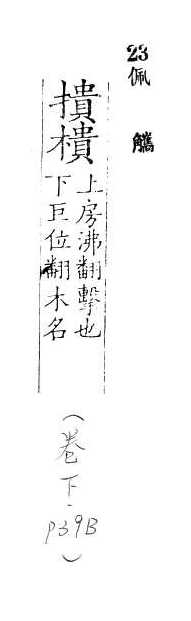 23
佩觿
㩌樻
上房沸翻擊也
下巨位翻木名
(卷下.
p39B
)